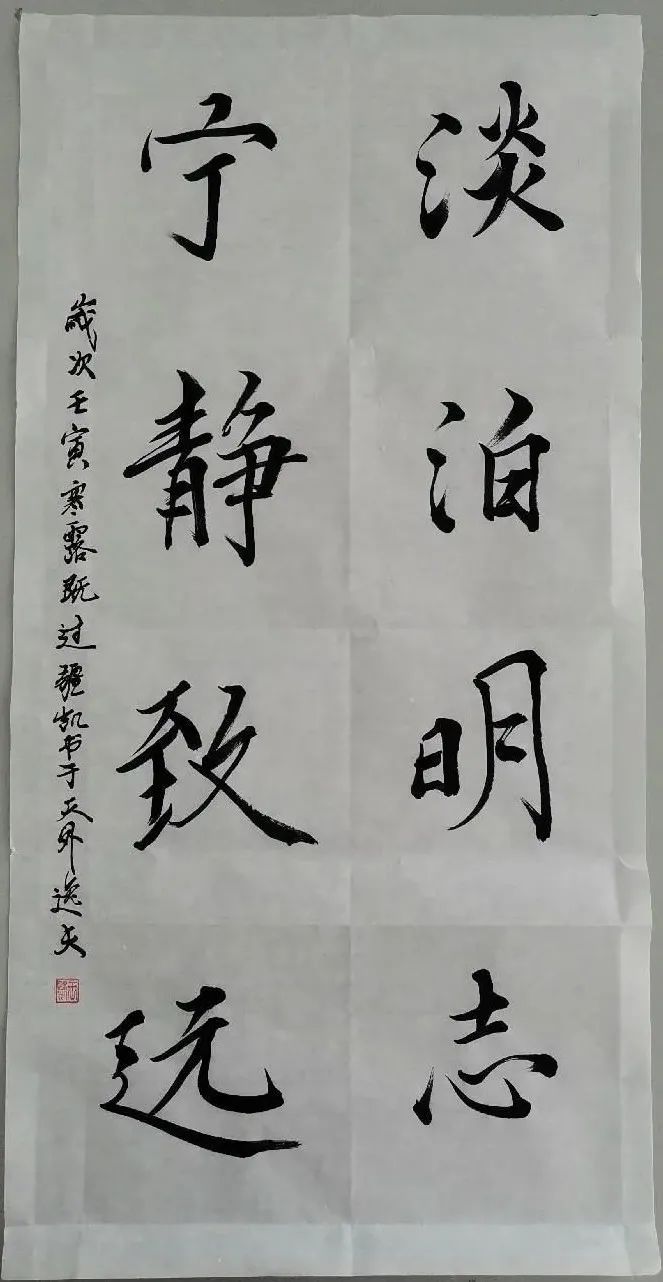 淡泊明志
宁静致远
歲次壬寅寒露既过疆凯书于天外逸夫